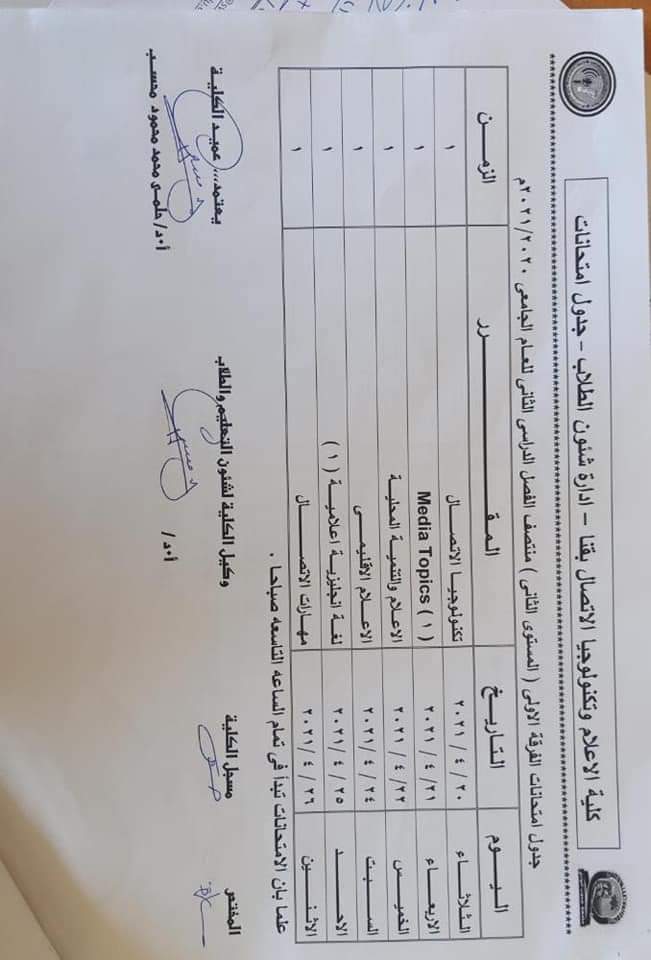 كلية الاعلام وتكنولوجيا الاتصال بقنا - ادارة شئون الطلاب - جدول امتحانات
جدول امتحانات الفرقة الاولى ( المستوى الثانى ) منتصف الفصل الدراسى الثانى للعام الجامعى ٢٠٢١/٢٠٢٠م
اليوم التاريخ المقرر الزمن
الثلاثاء ٢٠ / ٤ / ٢٠٢١ تكنولوجيا الاتصال ١
الاربعاء ٢١ / ٤ / ٢٠٢١ Media Topics ( ١ ) ١
الخميس ٢٢ / ٤ / ٢٠٢١ الاعلام والتنمية المحلية ١
السبت ٢٤ / ٤ / ٢٠٢١ الاعلام الاقليمى ١
الاحد ٢٥ / ٤ / ٢٠٢١ لغة انجليزية اعلامية ( ١ ) ١
الاثنين ٢٦ / ٤ / ٢٠٢١ مهارات الاتصال ١
علما بان الامتحانات تبدأ فى تمام الساعه التاسعه صباحا .
المختص مسجل الكلية وكيل الكلية لشئون التعليم والطلاب يعتمد،،، عميد الكلية
أ.د/ أ.د/ حلمى محمد محمود محسب